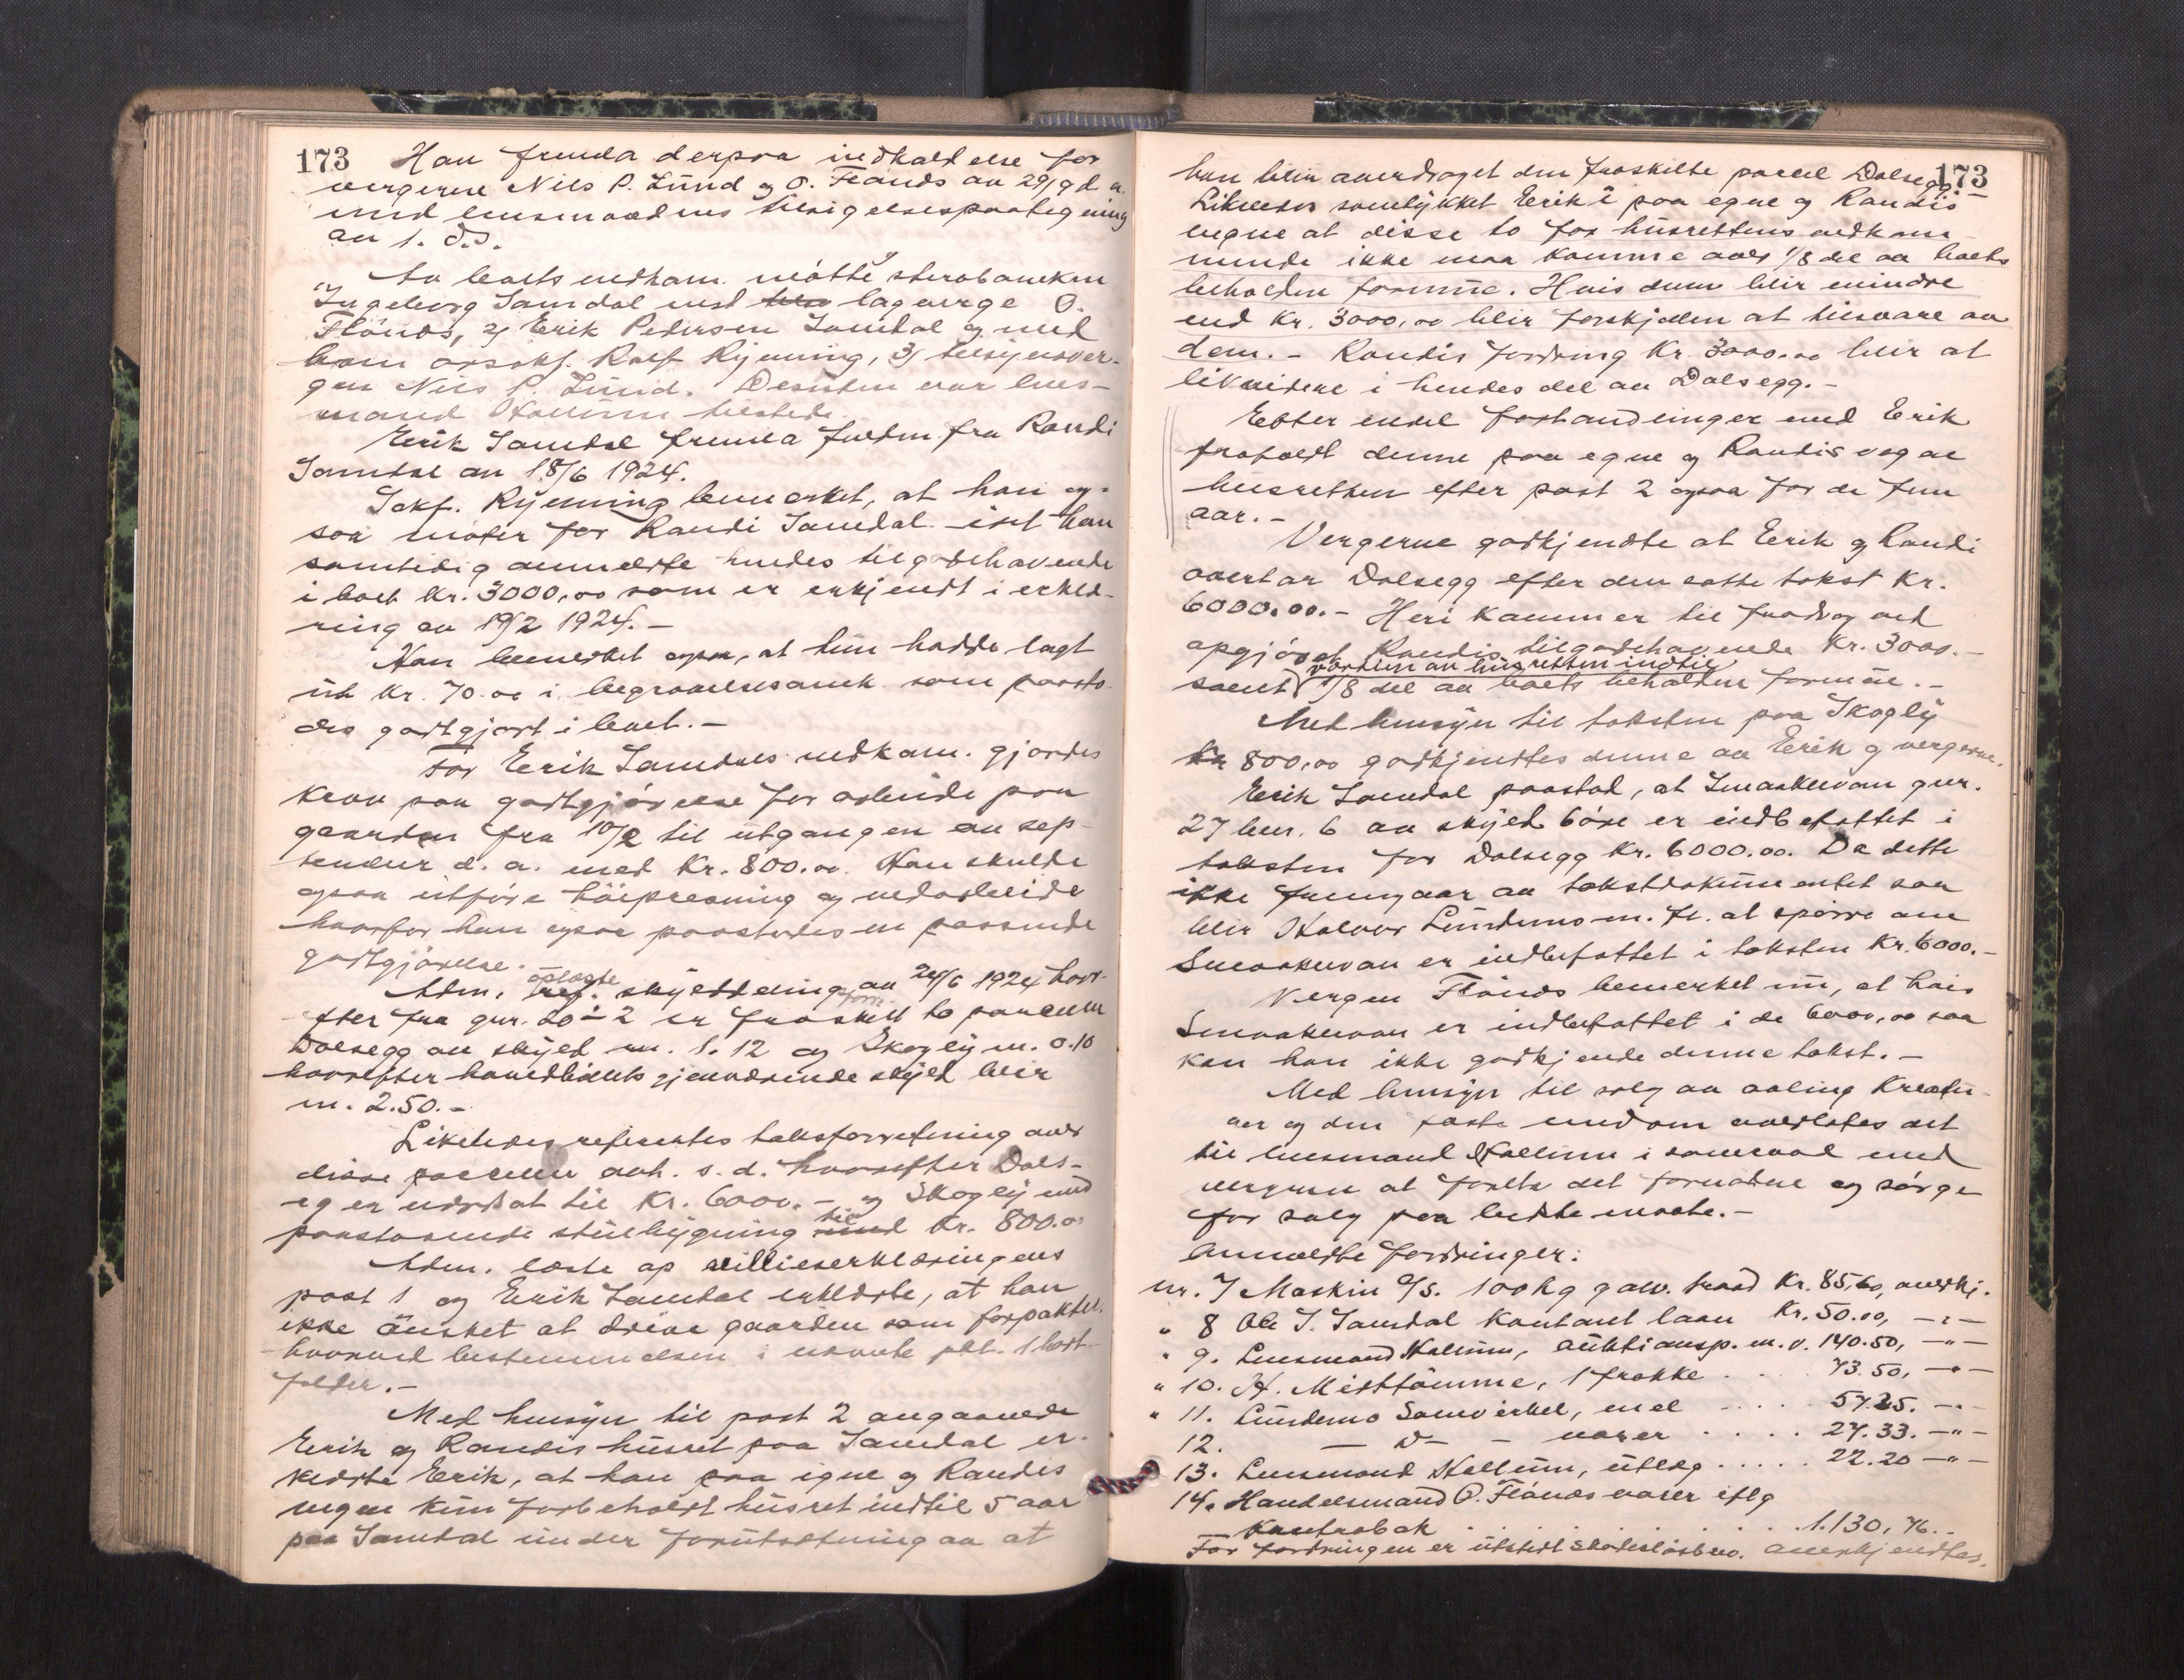 173
Han fremla derpaa indkaldelse for
vergerne Nils P. Lund og O. Flónes av 29/9 d. a.
med lensmandens tilsigelsespaategning
av 1. ds.
Av boets vedkom. mötte 1) sterbоenken
Ingeborg Samdal med lagverge O.
Flónes, 2) Erik Pedersen Samdal og med
ham orsakf. Rolf Ryjenning, 3) tilsynsver-
gen Nils P. Lund. Desuten var lens-
mand Hallem tilstede.
Erik Samdal fremla fuldm. fra Randi
Samdal av 18/6 1924.
Sakf. Ryjenning bemerket, at han og-
saa möter for Randi Samdal idet han
samtidig anmeldte hendes tilgodehavende
i boet kr. 3000,00 som er erkjendt i erklæ-
ring av 19/2 1924.-
Han bemerket ogsaa, at hun hadde lagt
ut kr. 70.00 i begravelsesomk. som paasto-
des godtgjort i boet.-
For Erik Samdals vedkom. gjordes
krav paa godtgjörelse for arbeide paa
gaarden fra 10/2 til utgangen av sep-
tember d. a. med kr. 800.00. Han skulde
ogsaa utföre höipresning og vedarbeide
hvorfor han ogsaa paastodes en passende
godtgjörelse.
Adm. oplæste skylddeling av 24/6 1924 hvor-
efter fra gnr. 20 - 2 er fraskilt to parceller
Dalsegg av skyld m. 1.12 og Skogly m. 0.10
hvorefter hovedbölets gjenværende skyld blir
m. 2.50.-
Likeledes refereres takstforretning over
disse parceller avh. s. d. hvorefter Dals-
eg er verdsat til kr. 6000.- og Skogly med
paastaaende stuebygning til kr. 800.00
Adm. læste op villieserklæringens
post 1 og Erik Samdal erklærte, at han
ikke önsket at drive gaarden som forpakter.
hvorved bestemmelsen i nævnte pkt. 1 bort-
falder.-
Med hensyn til post 2 angaaende
Erik og Randis husret paa Samdal er-
klærte Erik, at han paa egne og Randis
vegne kun forbeholdt husret indtil 5 aar
paa Samdal under forutsetning av at
173
han blir overdraget den fraskilte parcel Dalsegg.
Likeledes samtykket Erik i paa egne og Randis
vegne at disse to for husrettens vedkom-
mende ikke maa komme over 1/8 del av boets
beholdne formue. Hvis denne blir mindre
end kr. 3000.00 blir forskjellen at tilsvare av
dem.- Randis fordring kr. 3000.00 blir at
likvidere i hendes del av Dalsegg.-
Efter endel forhandlinger med Erik
frafaldt denne paa egne og Randis vegne
husretten efter post 2 ogsaa for de fem
aar.-
Vergerne godkjendte at Erik og Randi
overtar Dalsegg efter den satte takst kr.
6000.00.- Heri kommer til fradrag ved
opgjöret Randis tilgodehavende kr. 3000.-
samt værdien av husretten indtil 1/8 del av boets beholdne formue.-
Med hensyn til taksten paa Skogly
kr 800,00 godkjendtes denne av Erik og vergerne.
Erik Samdal paastod, at Smaakervan gnr.
27 bnr. 6 av skyld 6 öre er indbefattet i
taksten for Dalsegg kr. 6000.00. Da dette
ikke fremgaar av takstdokumentet saa
blir Halvor Lundemo m. fl. at spörre om
Smaakervan er indbefattet i taksten kr. 6000.-
Vergen Flónes bemerket nu, at hvis
Smaakervan er indbefattet i de 6000,00 saa
kan han ikke godkjende denne takst.-
Med hensyn til salg av avling kreatu-
rer og den faste eiendom overlates det
til lensmand Hallem i samraad med
vergene at foreta det fornödne og sörge
for salg paa bedste maate.-
Anmeldte fordringer:
nr. 7 Maskin A/S. 100 kg galv. traad kr. 85,60, anerkj.
" 8 Ole J. Samdal kontant laan kr. 50.00, -"-
" 9. Lensmand Hallem, auktionsp. m. v. 140.50, -"-
" 10. H. Midttömme, 1 frakke . . . . 73.50, -"-
" 11. Lundemo Samvirkel, mel . . . . 57.25. -"-
12. - D- - varer . . . . 27.33. -"-
13. Lensmand Hallem, utlæg . . . . . 22.20 -"-
14. Handelsmand O. Flónes varer iflg
kontrabok . . . . . . . . . . 1.130,76.-
For fordringen er utstedt skadeslösbrev. Anerkjendtes.